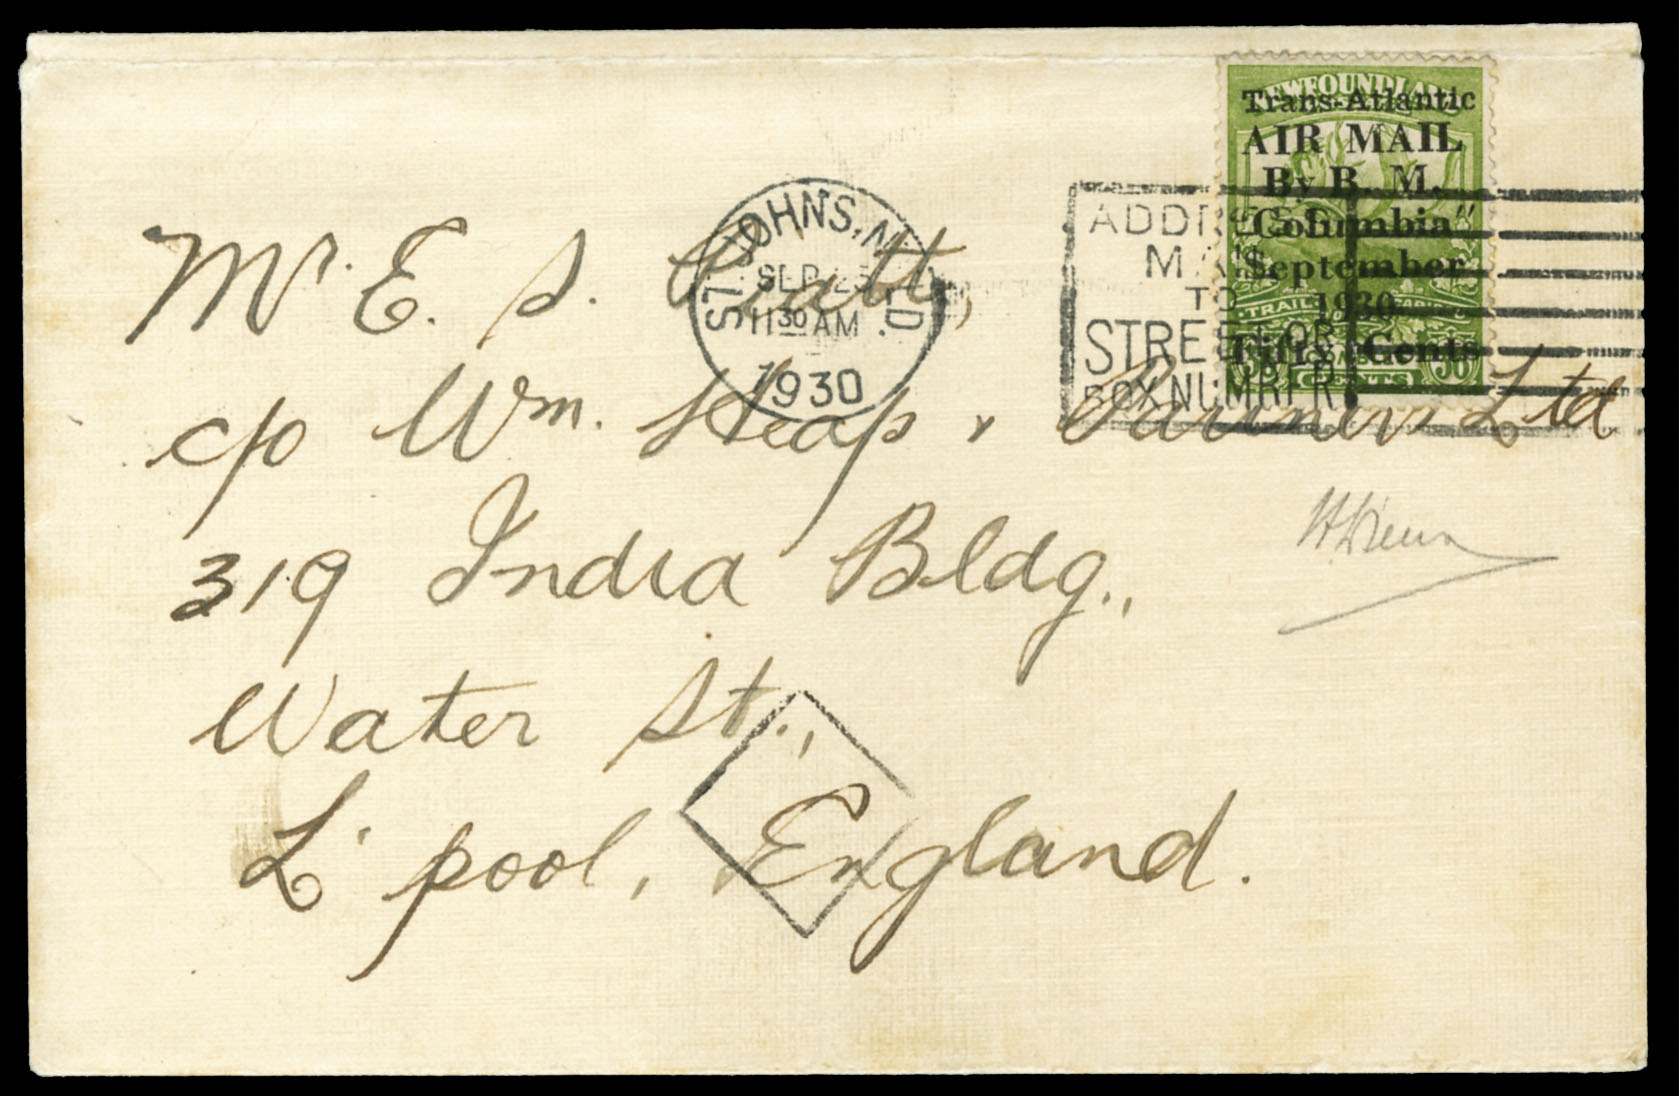 NEWFOUNDLAND
Trans-Atlantic
AIR MAIL
By B. M.
Columbia"
September
1930
Fifty Cents
TRAIL OF THE CARIBOU
36 36
CENTS
ST. JOHN'S, NFLD
SEP 25
11 30 AM
1930
ADDRESS
MAIL
TO
STREET OR
BOX NUMBER
Mr. E. S. Pratt,
c/o Wm. Heap & Partners Ltd
319 India Bldg.,
Water St.,
L'pool, England.